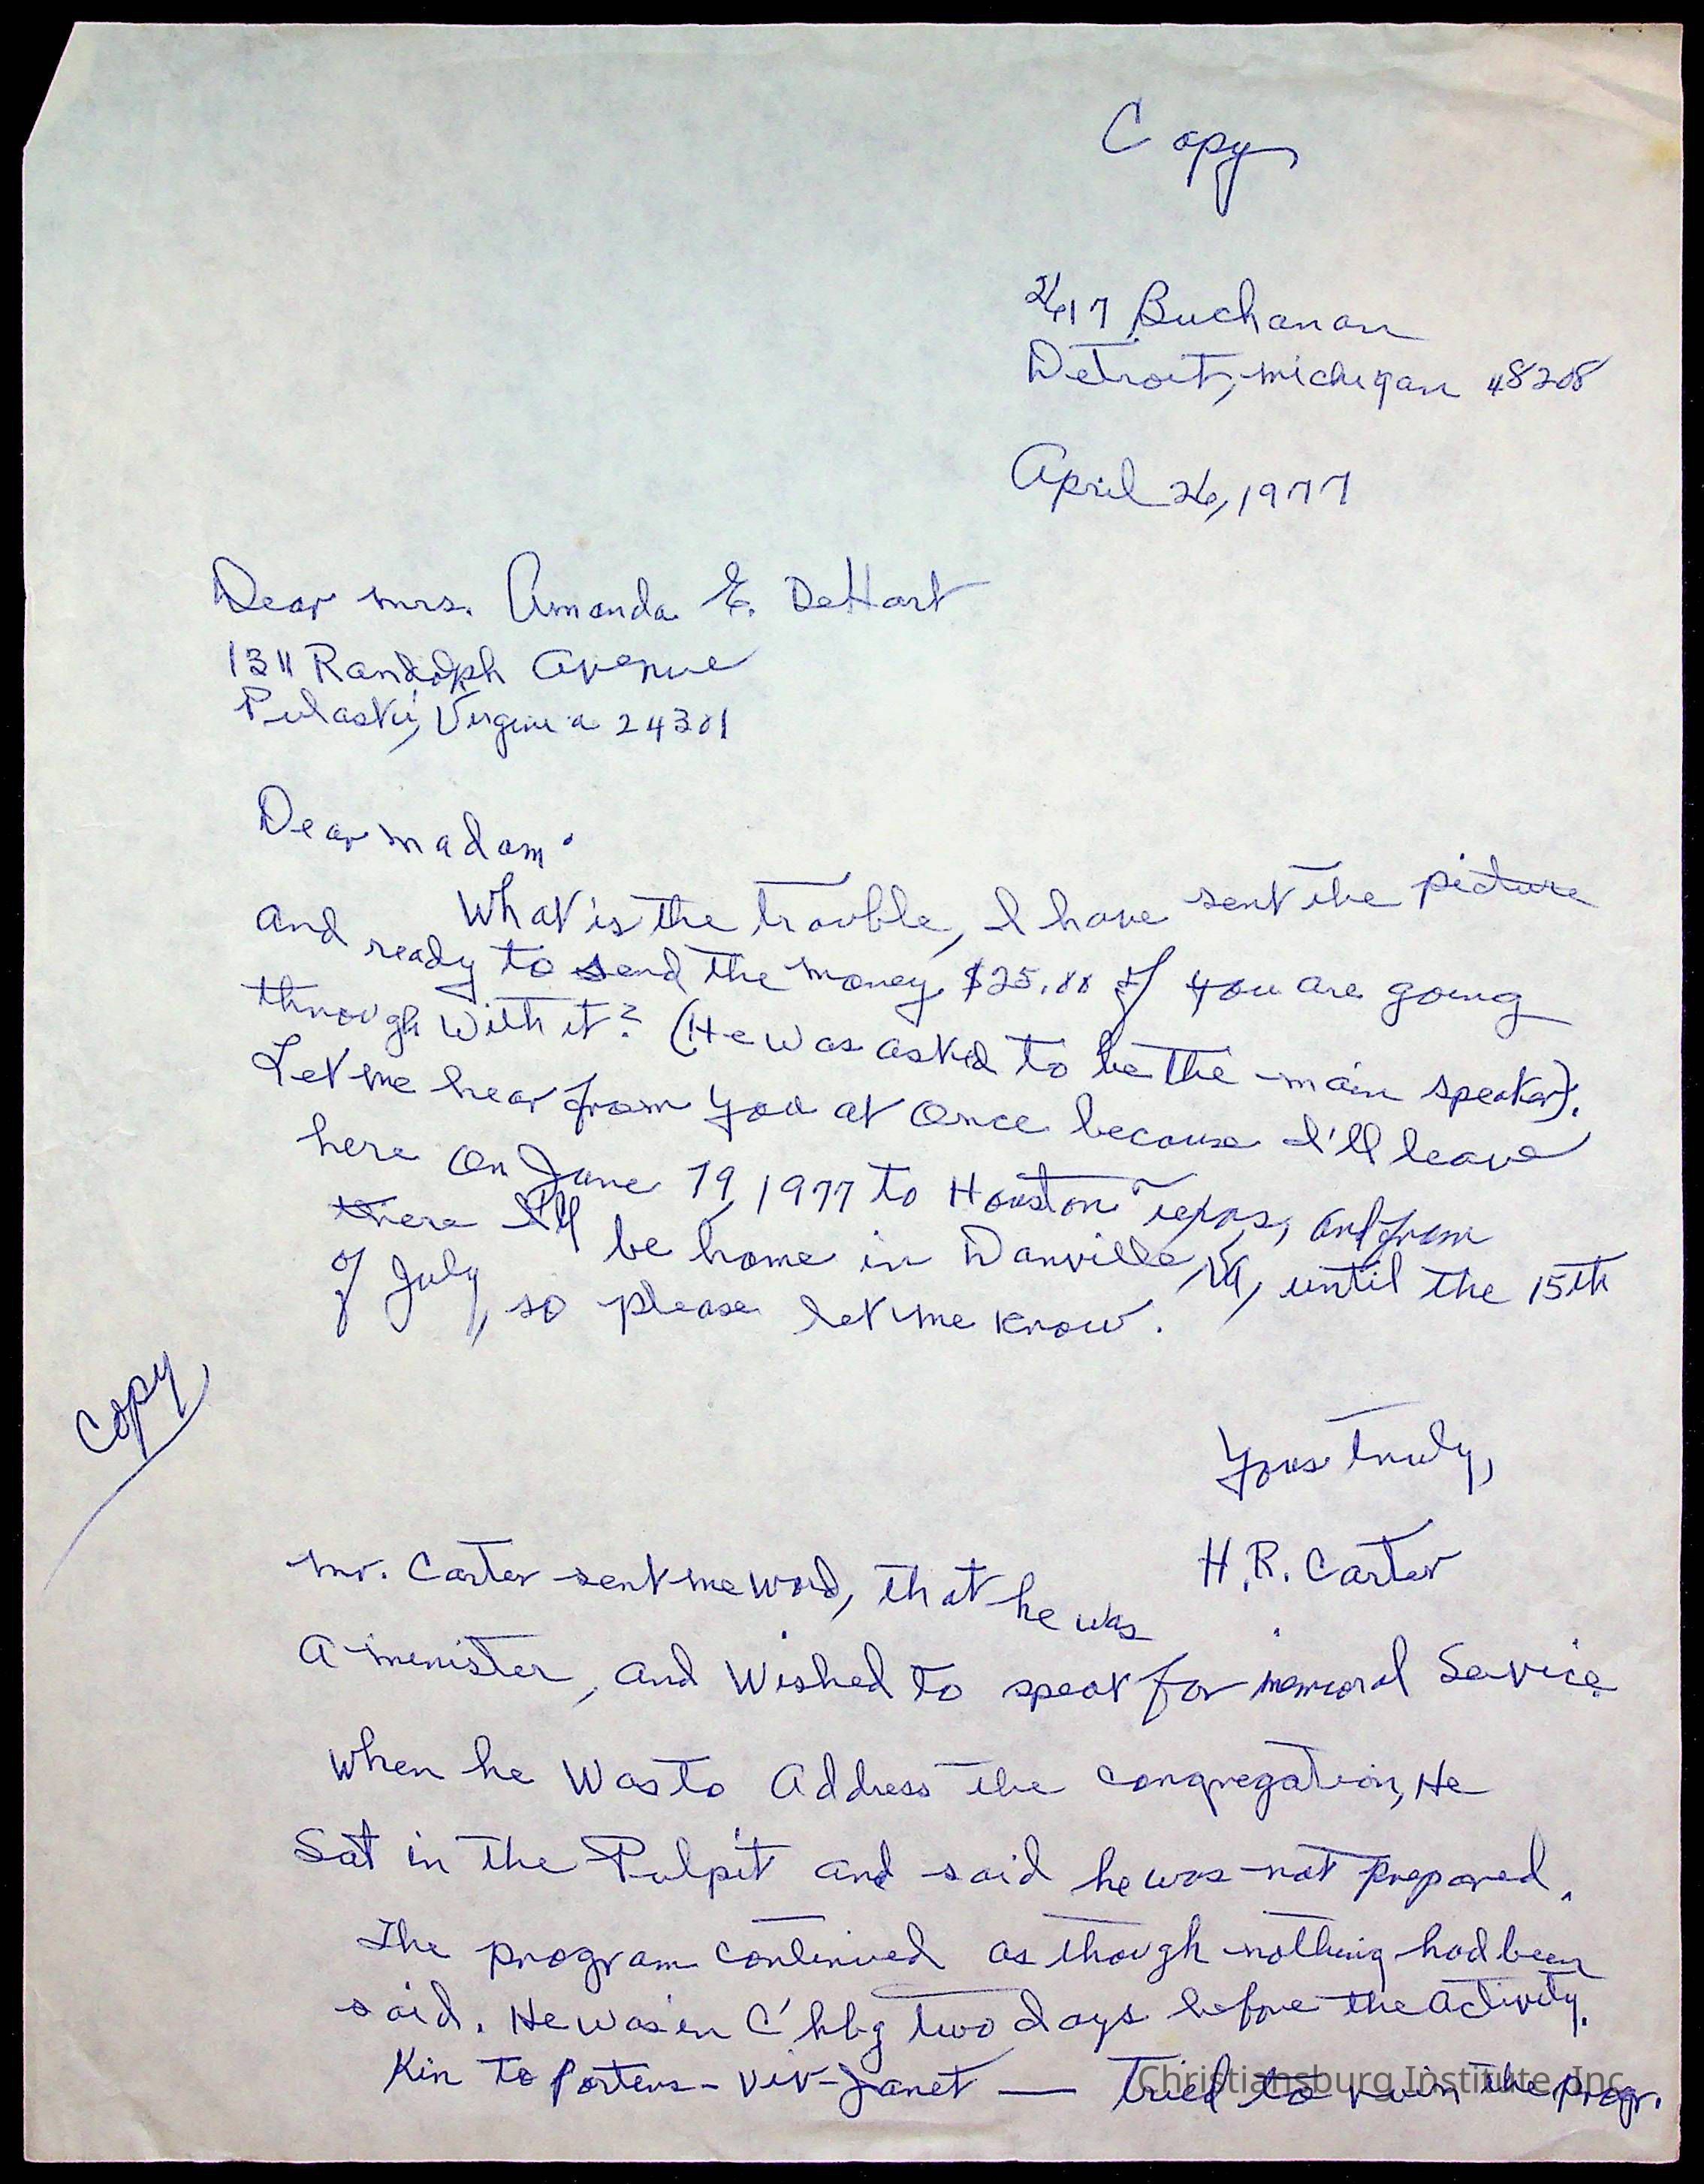 Copy
2617 Buchanan
Detroit, Michigan 48208
April 26, 1977
Dear Mrs. Amanda E. DeHart
1311 Randolph Avenue
Pulaski, Virginia 24301
Dear Madam:
What is the trouble, I have sent the picture
and ready to send the money $25.00 if you are going
through with it? (He was asked to be the main speaker).
Let me hear from you at once because I'll leave
here on June 19, 1977 to Houston Texas, and from
there I'll be home in Danville, VA, until the 15th
of July, so please let me know.
Copy
Yours truly,
H.R. Carter
Mr. Carter sent me word, that he was
a minister, and wished to speak for memoral Service.
When he was to address the congregation, He
Sat in the Pulpit and said he was not prepared.
The program continued as though nothing had been
said. He was in C'hbg two days before the activity.
Kin to Porters - Viv - Janet — Tried to ruin the progr.
Christiansburg Institute, Inc.